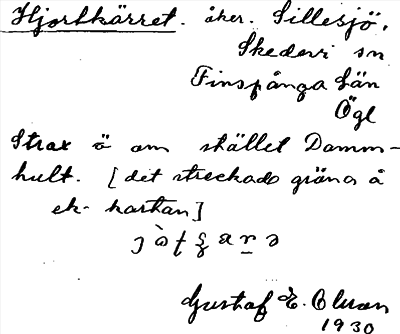 Hjortkärret. åker. Sillesjö,
Skedevi sn
Finspånga län
Ögl
Strax ö om stället Damm-
hult. [det streckade gröna å
ek. kartan]
Gustaf E.
1930